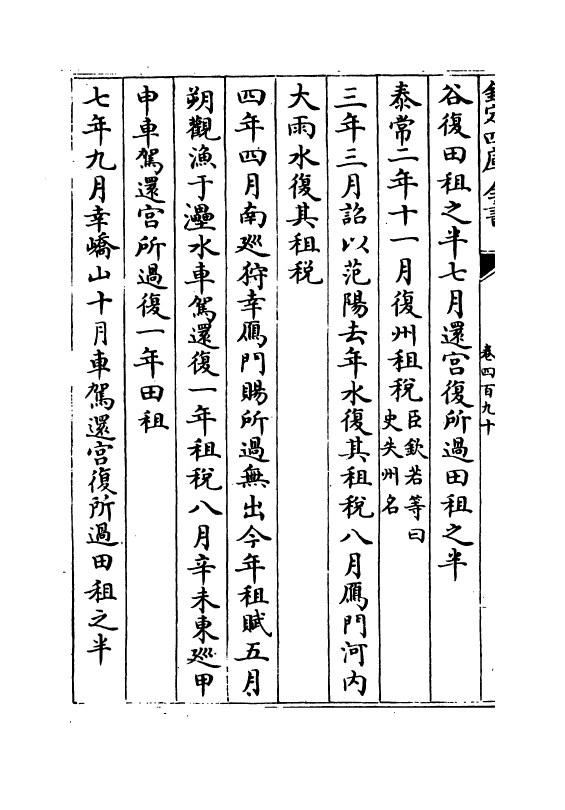 欽定四庫全書
卷四百九十
谷復田租之半七月還宮復所過田租之半
泰常二年十一月復州租稅臣欽若等曰史失州名
三年三月詔以范陽去年水復其租稅八月鴈門河内
大雨水復其租稅
四年四月南巡狩幸鴈門賜所過無出今年租賦五月
朔觀漁于㶟水車駕還復一年租稅八月辛未東巡甲
申車駕還宮所過復一年田租
七年九月幸嶠山十月車駕還宮復所過田租之半